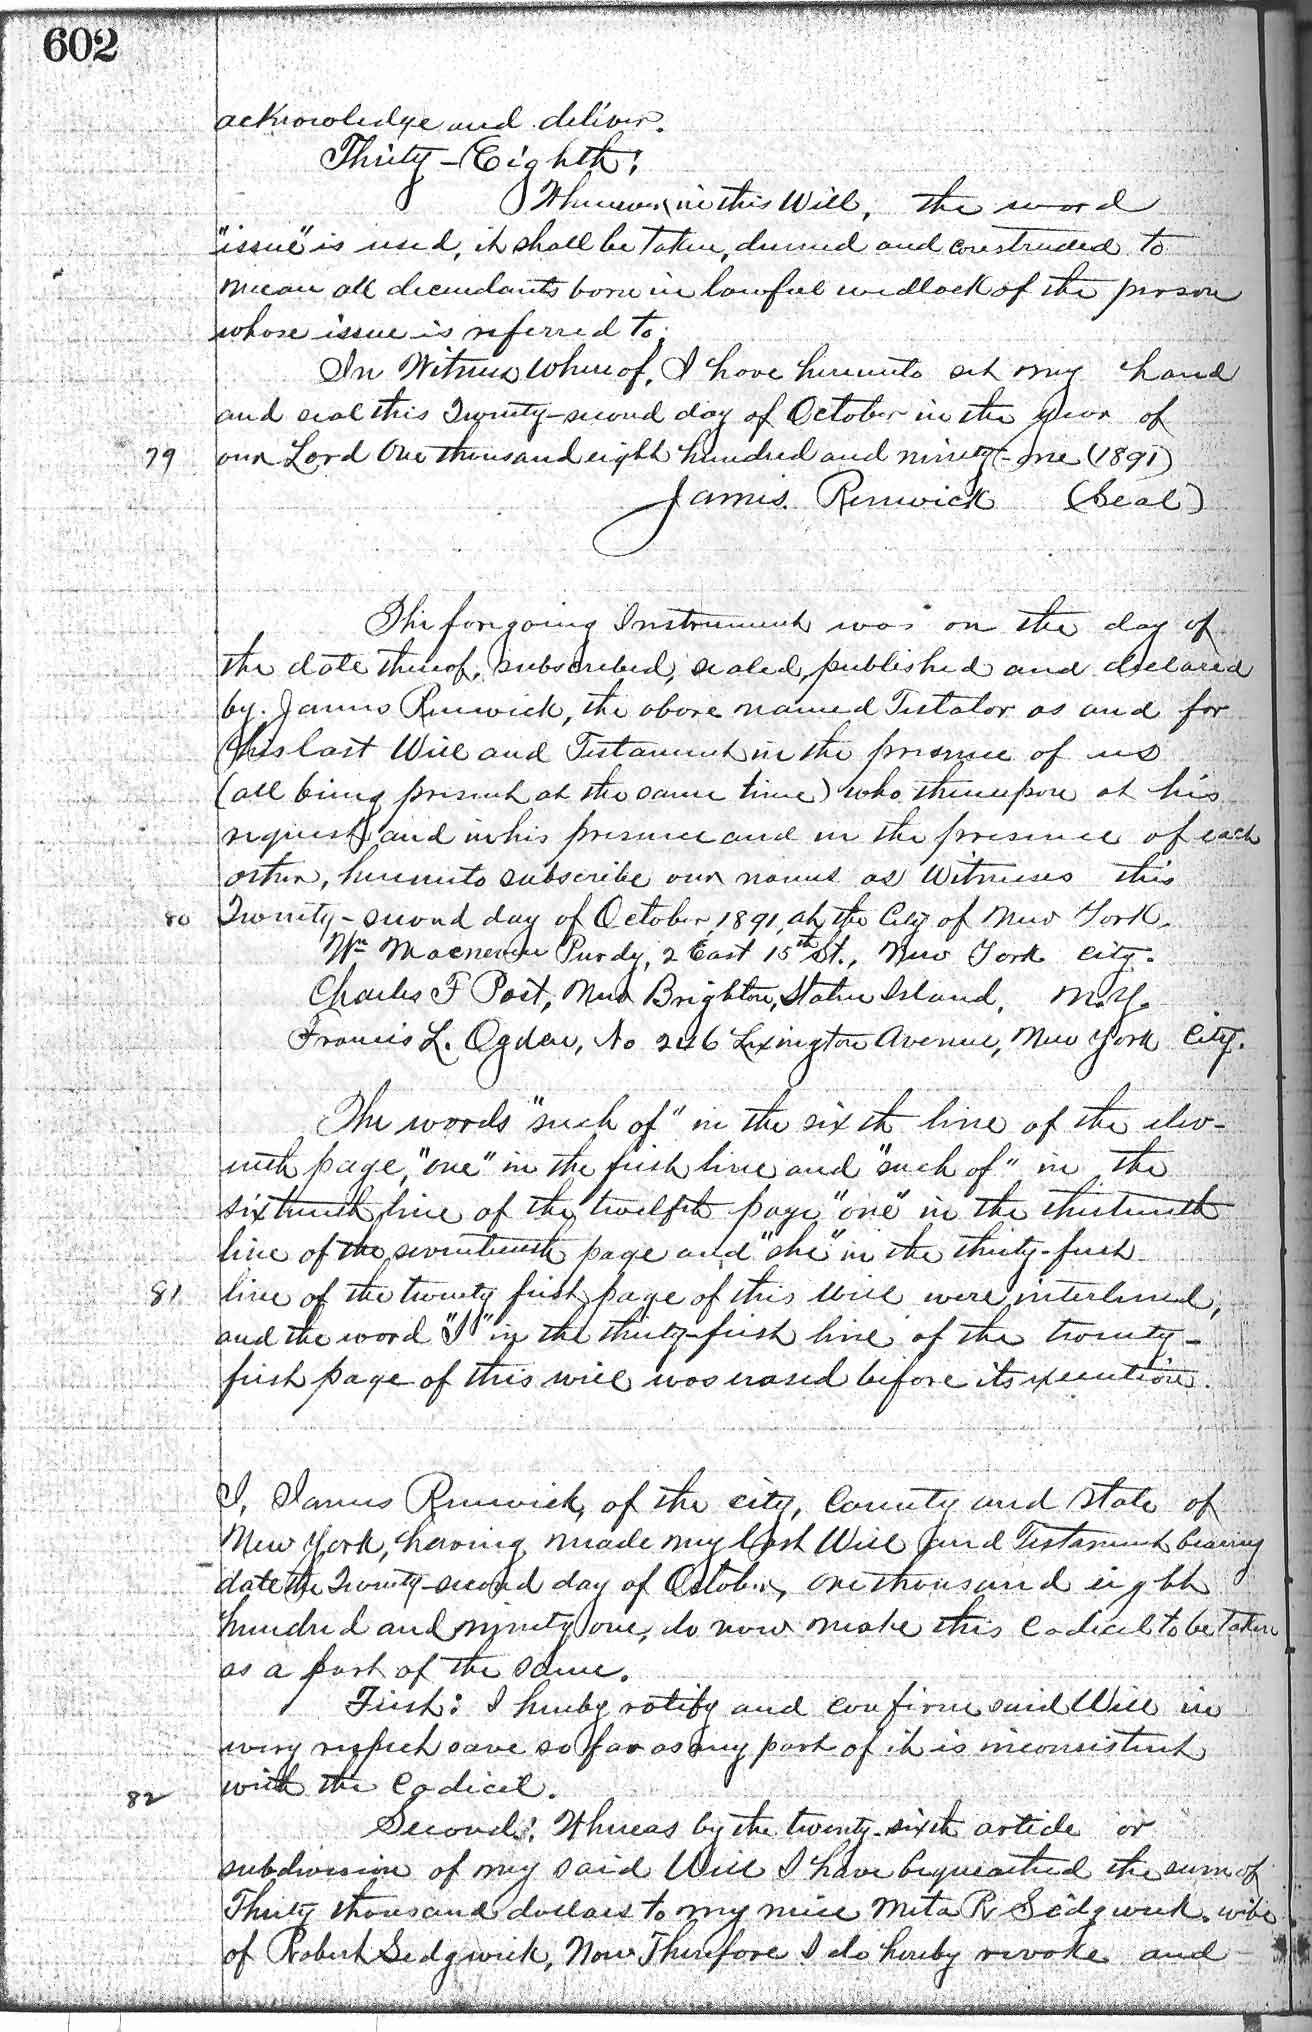 602
acknowledge and deliver.
Thirty-Eighth:
Whenever in this Will, the word
"issue" is used, it shall be taken, deemed and construded to
mean all decendants born in lawful wedlock of the person
whose issue is referred to.
In Witness Whereof, I have hereunto set my hand
and seal this Twenty-second day of October in the year of
79 our Lord One thousand eight hundred and ninety-one (1891)
James Renwick (Seal)
The foregoing Instrument was on the day of
the date thereof, subscribed, sealed, published and declared
by James Renwick, the above named Testator as and for
his last Will and Testament in the presence of us
(all being present at the same time) who thereupon at his
request and in his presence and in the presence of each
other, hereunto subscribe our names as Witnesses this
80 Twenty-second day of October, 1891, at the City of New York.
Wm Macneven Purdy, 2 East 15th St., New York City.
Charles F Post, New Brighton, Staten Island, N.Y.
Francis L. Ogden, No 246 Lexington Avenue, New York City.
The words "such of" in the sixth line of the elev-
enth page, "one" in the first line and "such of" in the
sixteenth line of the twelfth page "one" in the thirteenth
line of the seventeenth page and "she" in the thirty-first
81 line of the twenty first page of this Will were interlined,
and the word "I" in the thirty-first line of the twenty-
first page of this will was erased before its execution.
I, James Renwick, of the city, County and State of
New York, having made my last Will and Testament bearing
date the Twenty-second day of October, one thousand eight
hundred and ninety one, do now make this Codicil to be taken
as a part of the same.
First: I hereby ratify and confirm said Will in
every respect save so far as any part of it is inconsistent
82 with the Codicil.
Second: Whereas by the twenty-sixth article or
subdivision of my said Will I have bequeathed the sum of
Thirty thousand dollars to my niece Meta R Sedgwick, wife
of Robert Sedgwick, Now Therefore I do hereby revoke and